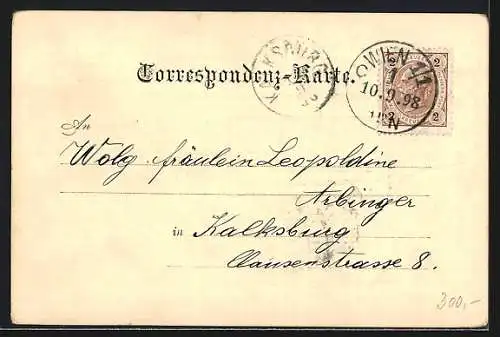 KALKSBURG
WIEN 1/1
10.9.98
2 2
Correspondenz-Karte.
2 2
An
Wolg. fräulein Leopoldine
Arbinger
in Kalksburg
Clausenstrasse 8.
300,-